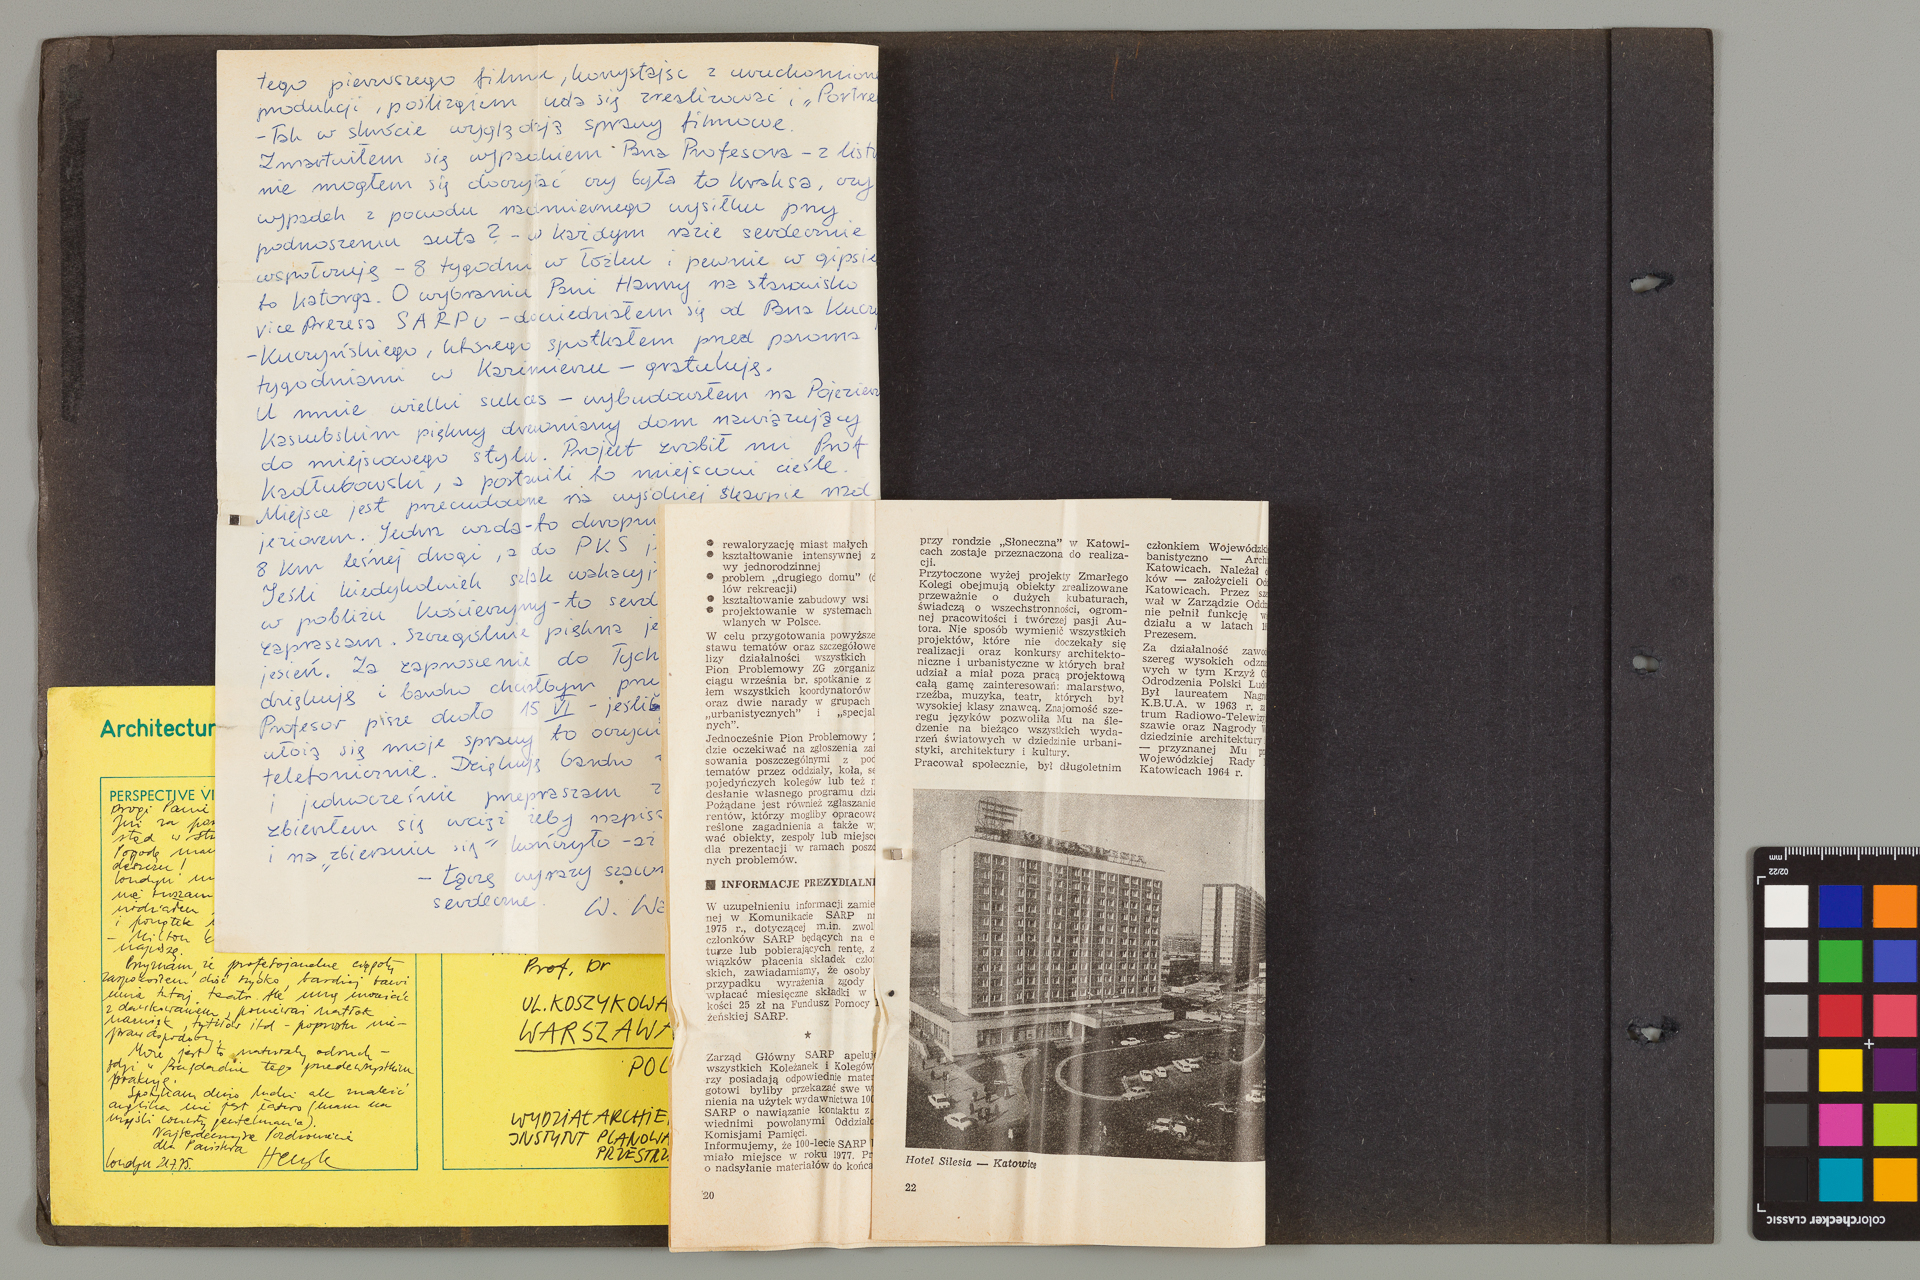 tego pierwszego filmu, korzystając z uruchomione
produkcji, poślizgiem uda się zrealizować i „Portre
- Tak w skrócie wyglądają sprawy filmowe.
Zmartwiłem się wypadkiem Pana Profesora - z listu
nie mogłem się doczytać czy była to kraksa, czy
wypadek z powodu nadmiernego wysiłku przy
podnoszeniu auta? - w każdym razie serdecznie
współczuję - 8 tygodni w łóżku i pewnie w gipsie
to katorga. O wybraniu Pani Hanny na stanowisko
vice Prezesa SARPu - dowiedziałem się od Pana Kuczy
- Kuczyńskiego, którego spotkałem przed paroma
tygodniami w Kazimierzu - gratuluję.
U mnie wielki sukces - wybudowałem na Pojezierz
Kaszubskim piękny drewniany dom nawiązujący
do miejscowego stylu. Projekt zrobił mi Prof
Kadłubowski, a postawili to miejscowi cieśle.
Miejsce jest przecudowne na wysokiej skarpie nad
jeziorem. Jedna wada - to dwopu
8 km leśnej drogi, a do PKS j
Jeśli kiedykolwiek szlak wakacyj
w pobliżu Kościerzyny - to serd
zapraszam. Szczególnie piękna je
jesień. Za zaproszenie do Tych
dziękuję i bardzo chciałbym prz
Profesor pisze około 15 VI - jeśli
ułożą się moje sprawy to oczywi
telefonicznie. Dziękuję bardzo
i jednocześnie przepraszam z
zbierałem się wciąż żeby napisa
i na „zbieraniu się" kończyło - aż
- Łączę wyrazy szacun
serdeczne. W. Wa
Architectur
PERSPECTIVE VI
Drogi Panie
Już za
stąd w
Pogodę mam
deszczu!
Londyn!
nie ruszam
i początek
- Milton
napiszę.
Przyznam, że profesjonalne ciągoty
zaspokoiłem dość szybko, bardziej bawi
mnie tutaj teatr. Ale
ponieważ natłok
nazwisk, tytułów itd - poprostu nie-
prawdopodobny.
Może jest to naturalny odruch -
gdy
praktykę.
Spotykam dużo ludzi ale znaleźć
anglika nie jest łatwo (mam na
myśli
Najserdeczniejsze pozdrowienia
dla Państwa
Londyn 21.7.75. Henryk
Prof. Dr
UL. KOSZYKOWA
WARSZAWA
POL
WYDZIAŁ ARCHITE
INSTYTUT PLANOWA
PRZESTRZ
● rewaloryzację miast małych
● kształtowanie intensywnej z
wy jednorodzinnej
● problem „drugiego domu" (d
lów rekreacji)
● kształtowanie zabudowy wsi
● projektowanie w systemach
wlanych w Polsce.
W celu przygotowania powyższe
stawu tematów oraz szczegółowe
lizy działalności wszystkich
Pion Problemowy ZG zorganiz
ciągu września br. spotkanie z
łem wszystkich koordynatorów
oraz dwie narady w grupach
„urbanistycznych" i „specjal
nych".
Jednocześnie Pion Problemowy Z
dzie oczekiwać na zgłoszenia zai
sowania poszczególnymi z pod
tematów przez oddziały, koła, se
pojedyńczych kolegów lub też n
desłanie własnego programu dzia
Pożądane jest również zgłaszanie
rentów, którzy mogliby opracowa
reślone zagadnienia a także w
wać obiekty, zespoły lub miejsc
dla prezentacji w ramach poszc
nych problemów.
■ INFORMACJE PREZYDIALN
W uzupełnieniu informacji zamie
nej w Komunikacie SARP nr
1975 r., dotyczącej m.in. zwol
członków SARP będących na e
turze lub pobierających rentę, z
wiązków płacenia składek czło
skich, zawiadamiamy, że osoby
przypadku wyrażenia zgody
wpłacać miesięczne składki w
kości 25 zł na Fundusz Pomocy
żeńskiej SARP.
*
Zarząd Główny SARP apeluj
wszystkich Koleżanek i Kolegów
rzy posiadają odpowiednie mater
gotowi byliby przekazać swe w
nienia na użytek wydawnictwa 100
SARP o nawiązanie kontaktu z
wiednimi powołanymi Oddział
Komisjami Pamięci.
Informujemy, że 100-lecie SARP
miało miejsce w roku 1977. Pr
o nadsyłanie materiałów do końca
20
przy rondzie „Słoneczna" w Katowi-
cach zostaje przeznaczona do realiza-
cji.
Przytoczone wyżej projekty Zmarłego
Kolegi obejmują obiekty zrealizowane
przeważnie o dużych kubaturach,
świadczą o wszechstronności, ogrom-
nej pracowitości i twórczej pasji Au-
tora. Nie sposób wymienić wszystkich
projektów, które nie doczekały się
realizacji oraz konkursy architekto-
niczne i urbanistyczne w których brał
udział a miał poza pracą projektową
całą gamę zainteresowań: malarstwo,
rzeźba, muzyka, teatr, których był
wysokiej klasy znawcą. Znajomość sze-
regu języków pozwoliła Mu na śle-
dzenie na bieżąco wszystkich wyda-
rzeń światowych w dziedzinie urbani-
styki, architektury i kultury.
Pracował społecznie, był długoletnim
członkiem Wojewódzki
banistyczno — Archi
Katowicach. Należał d
ków — założycieli Od
Katowicach. Przez sz
wał w Zarządzie Oddz
nie pełnił funkcję w
działu a w latach 1
Prezesem.
Za działalność zawo
szereg wysokich odzn
wych w tym Krzyż O
Odrodzenia Polski Lud
Był laureatem Nag
K.B.U.A. w 1963 r. z
trum Radiowo-Telewiz
szawie oraz Nagrody
dziedzinie architektury
— przyznanej Mu p
Wojewódzkiej Rady
Katowicach 1964 r.
Hotel Silesia — Katowice
22
mm
02/22
colorchecker CLASSIC